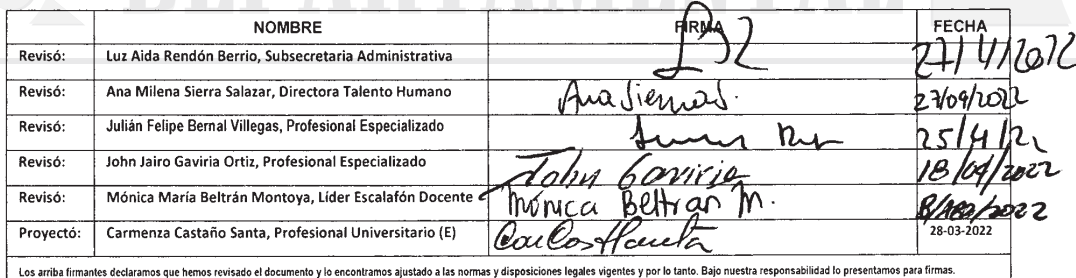 DEPARTAMENTAL
NOMBRE FIRMA FECHA
Revisó: Luz Aida Rendón Berrio, Subsecretaria Administrativa 27/4/2022
Revisó: Ana Milena Sierra Salazar, Directora Talento Humano Ana Sierra S. 27/04/2022
Revisó: Julián Felipe Bernal Villegas, Profesional Especializado 25/4/22
Revisó: John Jairo Gaviria Ortiz, Profesional Especializado John Gaviria 18/04/2022
Revisó: Mónica María Beltrán Montoya, Líder Escalafón Docente Mónica Beltran M. 2022
Proyectó: Carmenza Castaño Santa, Profesional Universitario (E) 28-03-2022
Los arriba firmantes declaramos que hemos revisado el documento y lo encontramos ajustado a las normas y disposiciones legales vigentes y por lo tanto. Bajo nuestra responsabilidad lo presentamos para firmas.